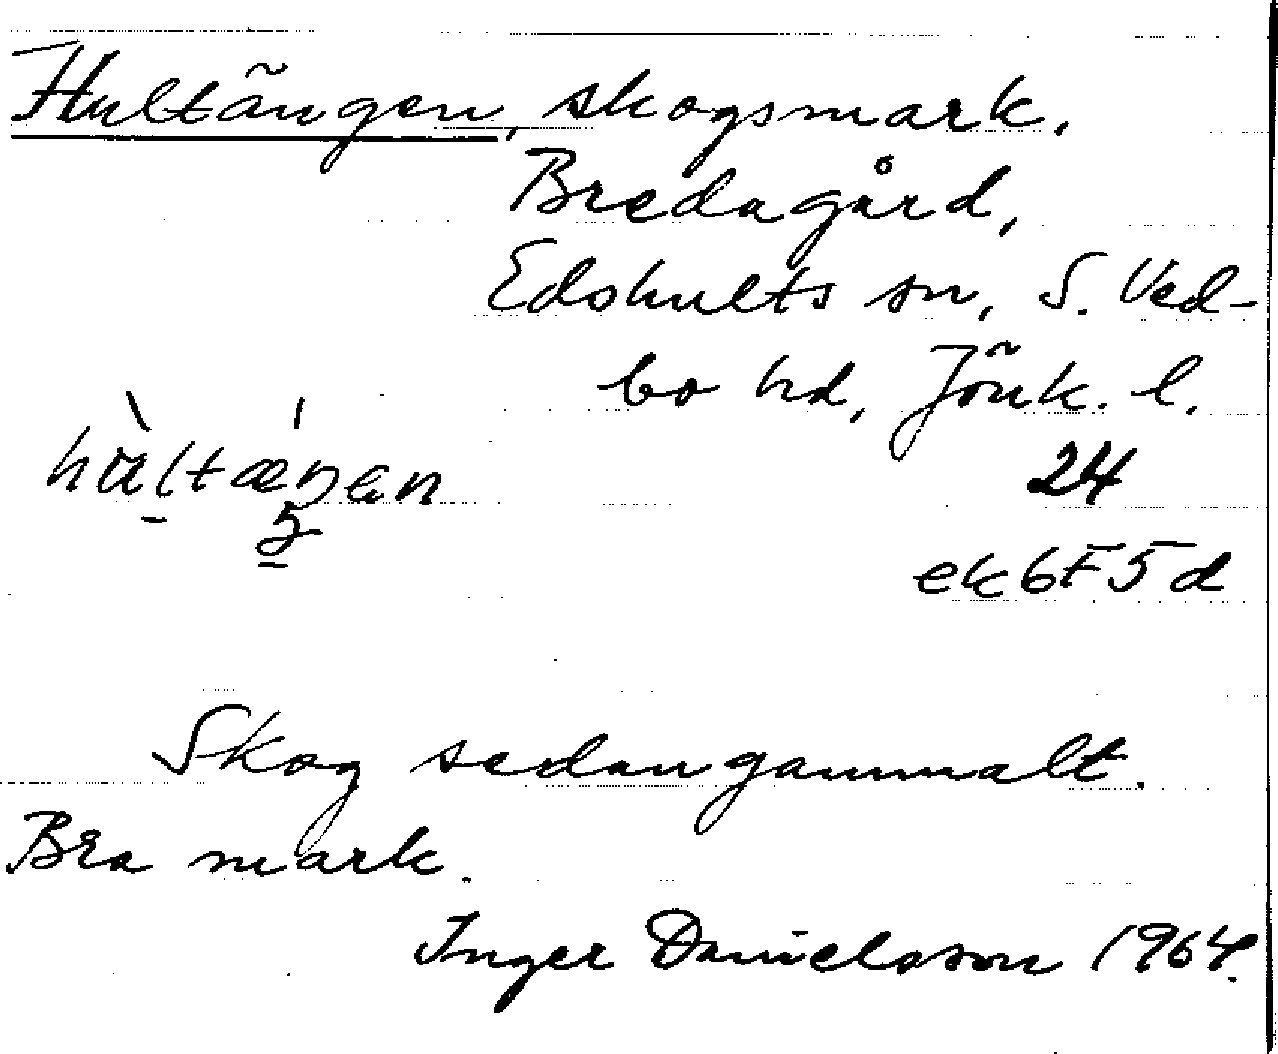 Hultängen, skogsmark.
Bredagård,
Edshults sn, S. Ved-
bo hd, Jönk. l.
24
ek 6F5d
Skog sedan gammalt.
Bra mark.
Inger Danielsson 1964.